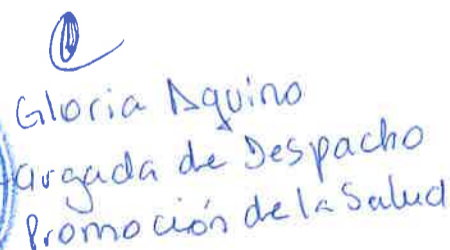 Gloria Aquino
argada de Despacho
Promoción de la Salud